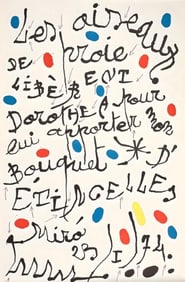 Les oiseaux
proie
DE
LIBÈRENT
DOROTHEA pour
lui apporter mon
Bouquet D'
ÉTINCELLES
Miró
23 I 74.